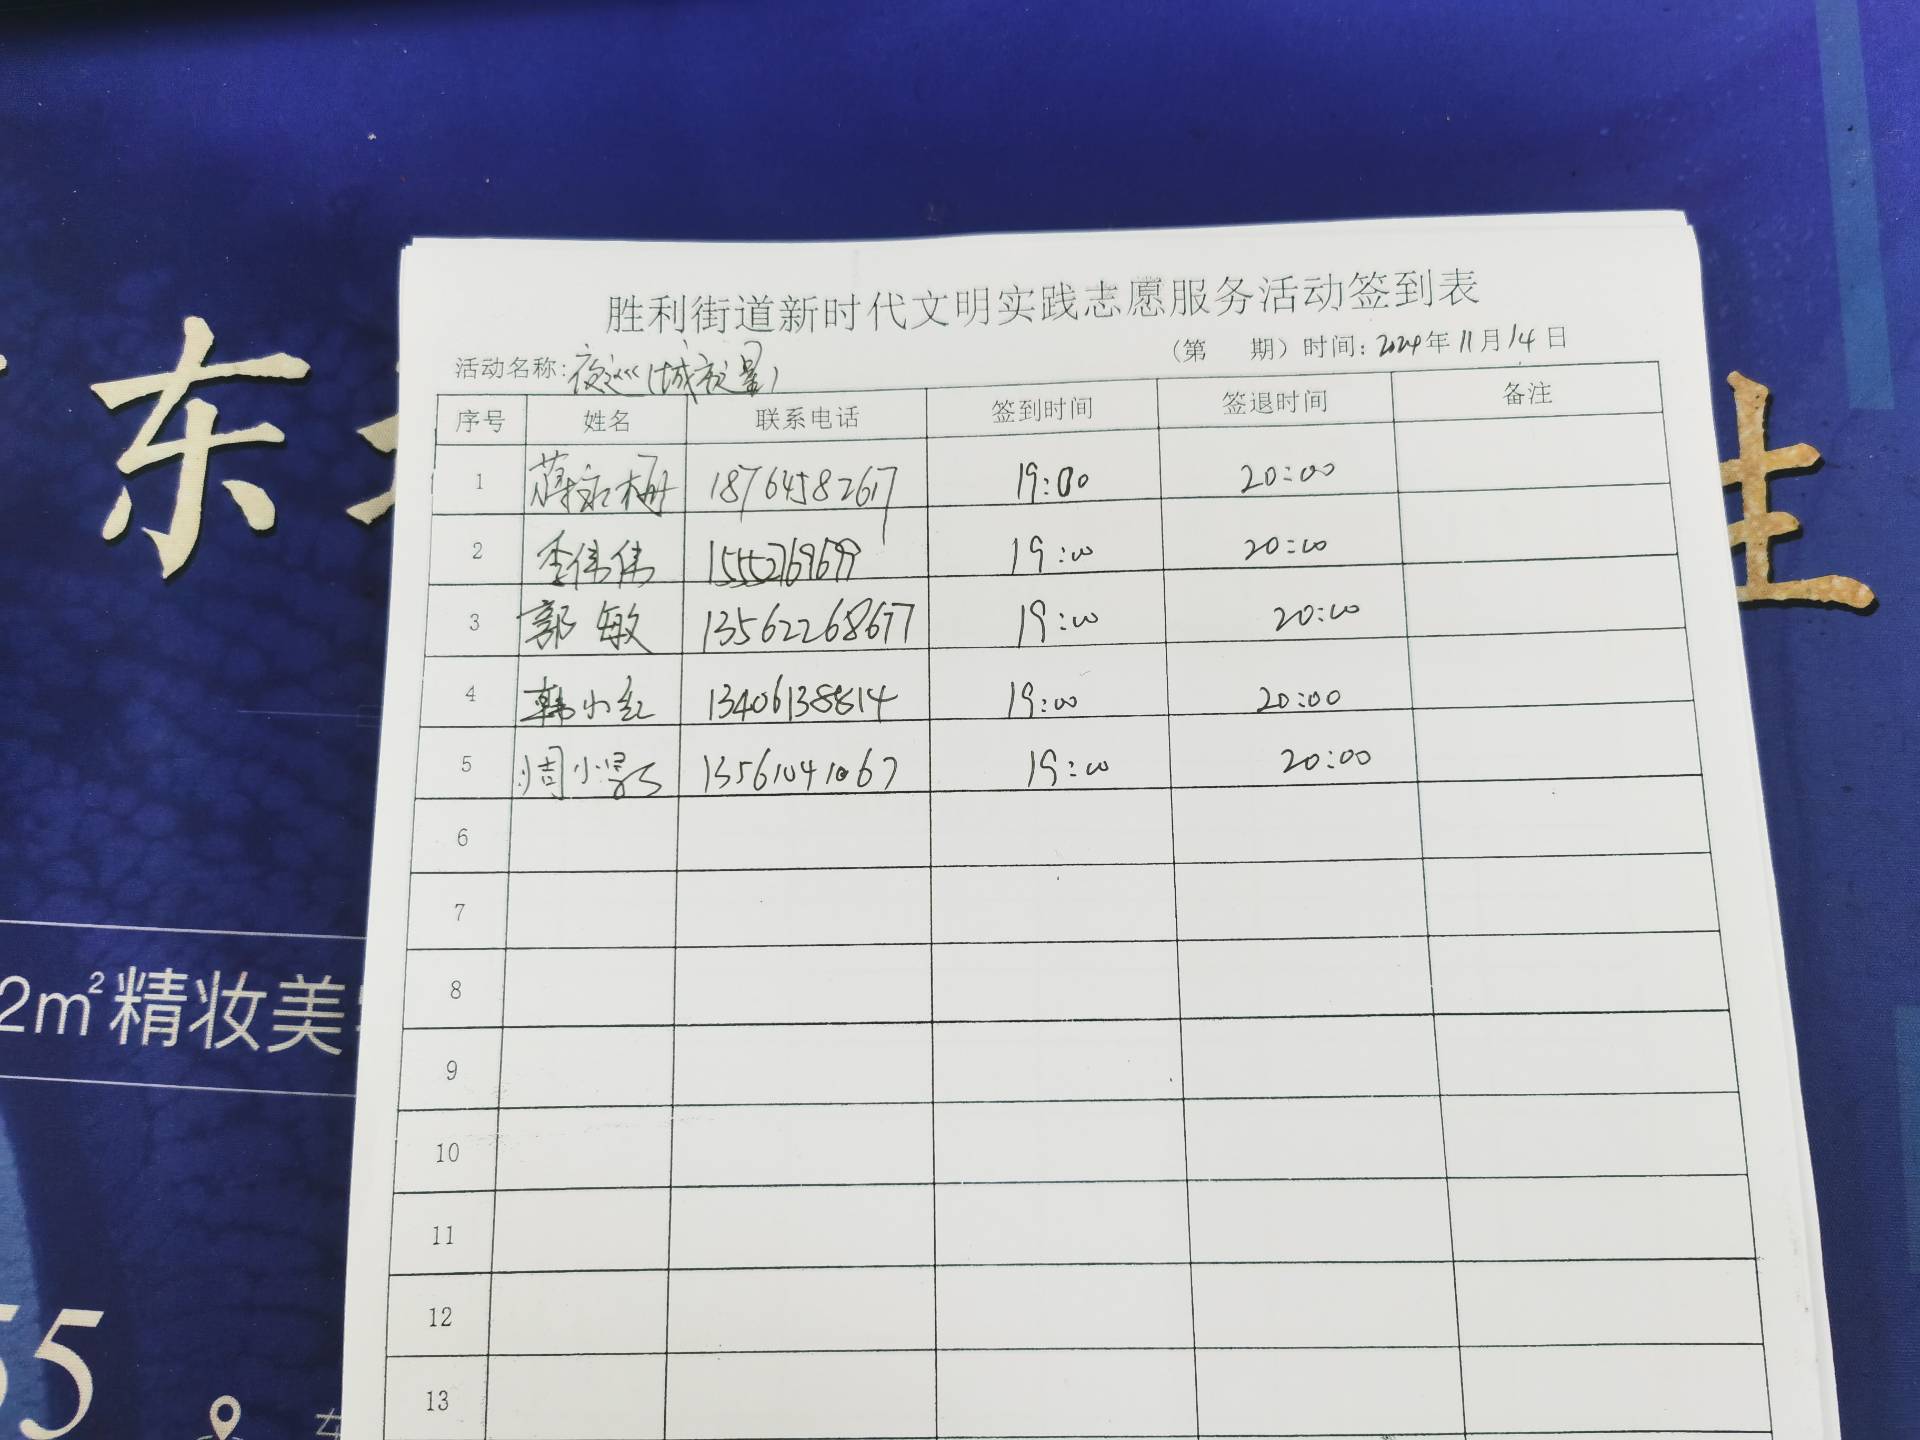 胜利街道新时代文明实践志愿服务活动签到表
活动名称:夜巡(城市之星) (第 期) 时间: 2024年11月14日
序号 姓名 联系电话 签到时间 签退时间 备注
1 蒋永梅 18764582617 19:00 20:00
2 李伟伟 15552769699 19:00 20:00
3 郭敏 13562268677 19:00 20:00
4 韩小红 13406138814 19:00 20:00
5 周小 13561041067 19:00 20:00
6
7
8
9
10
11
12
13
东
2m²精妆美
55